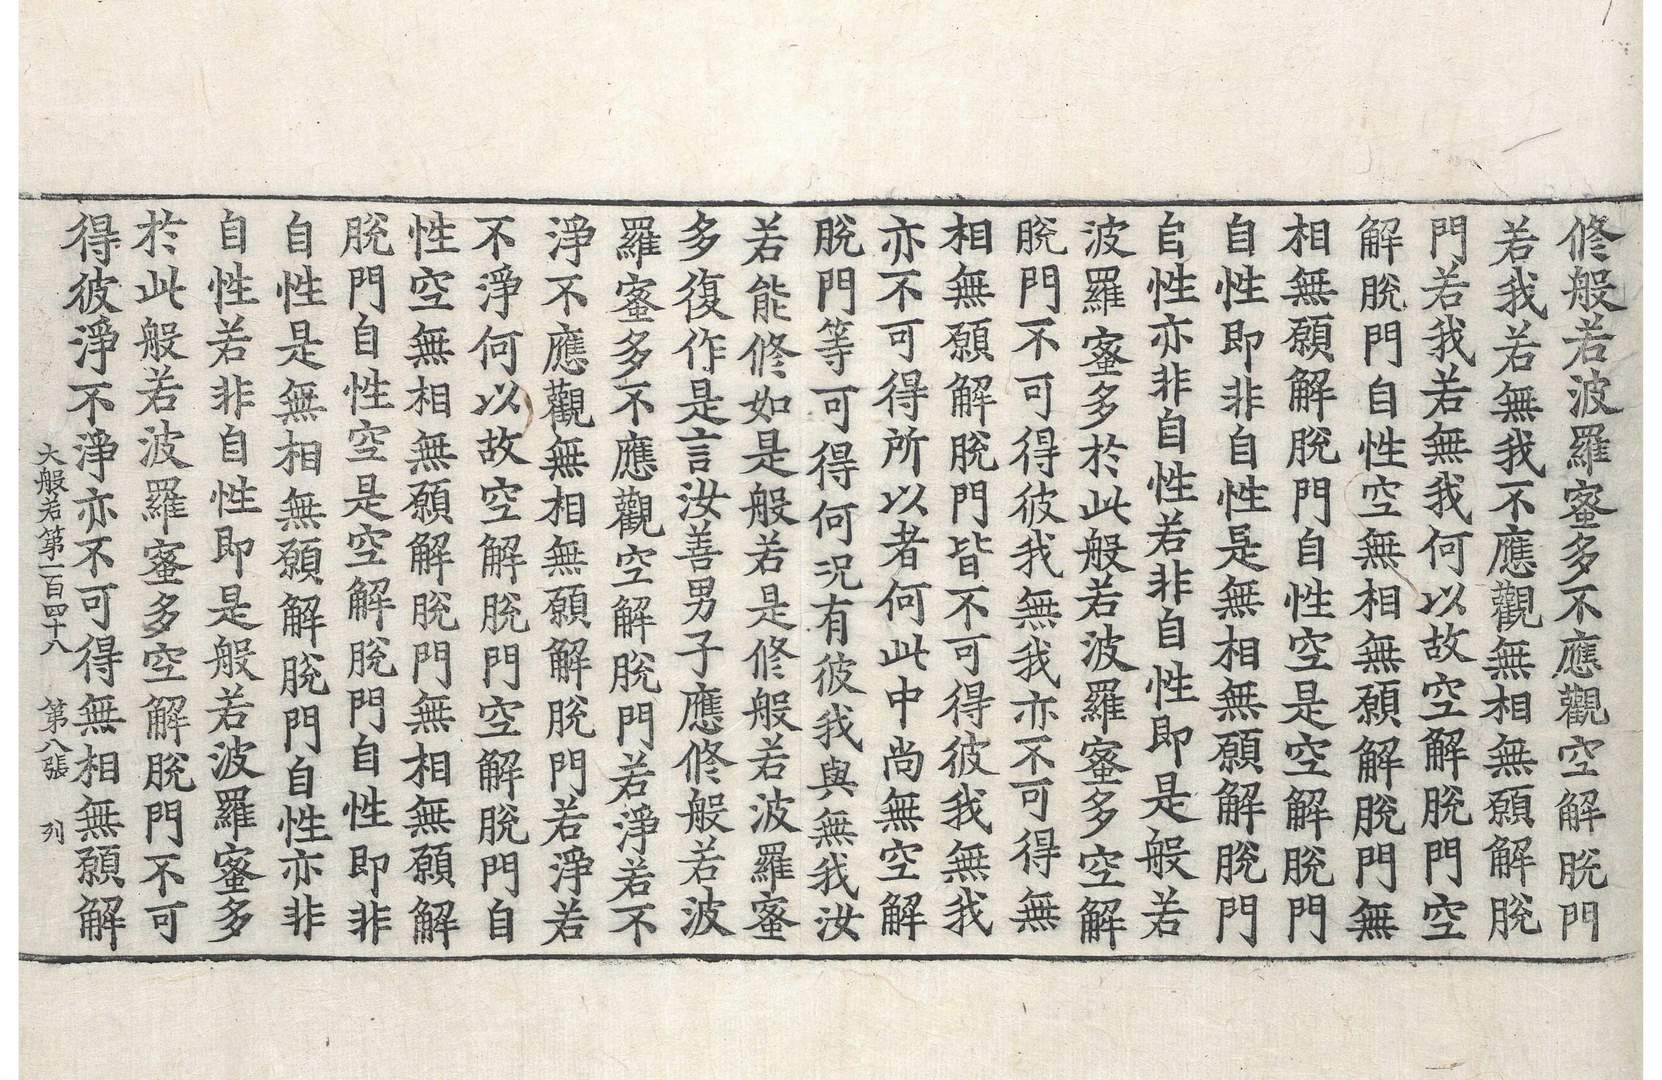 修般若波羅蜜多不應觀空解脫門
若我若無我不應觀無相無願解脫
門若我若無我何以故空解脫門空
解脫門自性空無相無願解脫門無
相無願解脫門自性空是空解脫門
自性即非自性是無相無願解脫門
自性亦非自性若非自性即是般若
波羅蜜多於此般若波羅蜜多空解
脫門不可得彼我無我亦不可得無
相無願解脫門皆不可得彼我無我
亦不可得所以者何此中尚無空解
脫門等可得何況有彼我與無我汝
若能修如是般若是修般若波羅蜜
多復作是言汝善男子應修般若波
羅蜜多不應觀空解脫門若淨若不
淨不應觀無相無願解脫門若淨若
不淨何以故空解脫門空解脫門自
性空無相無願解脫門無相無願解
脫門自性空是空解脫門自性即非
自性是無相無願解脫門自性亦非
自性若非自性即是般若波羅蜜多
於此般若波羅蜜多空解脫門不可
得彼淨不淨亦不可得無相無願解
大般若第一百四十八 第八張 列